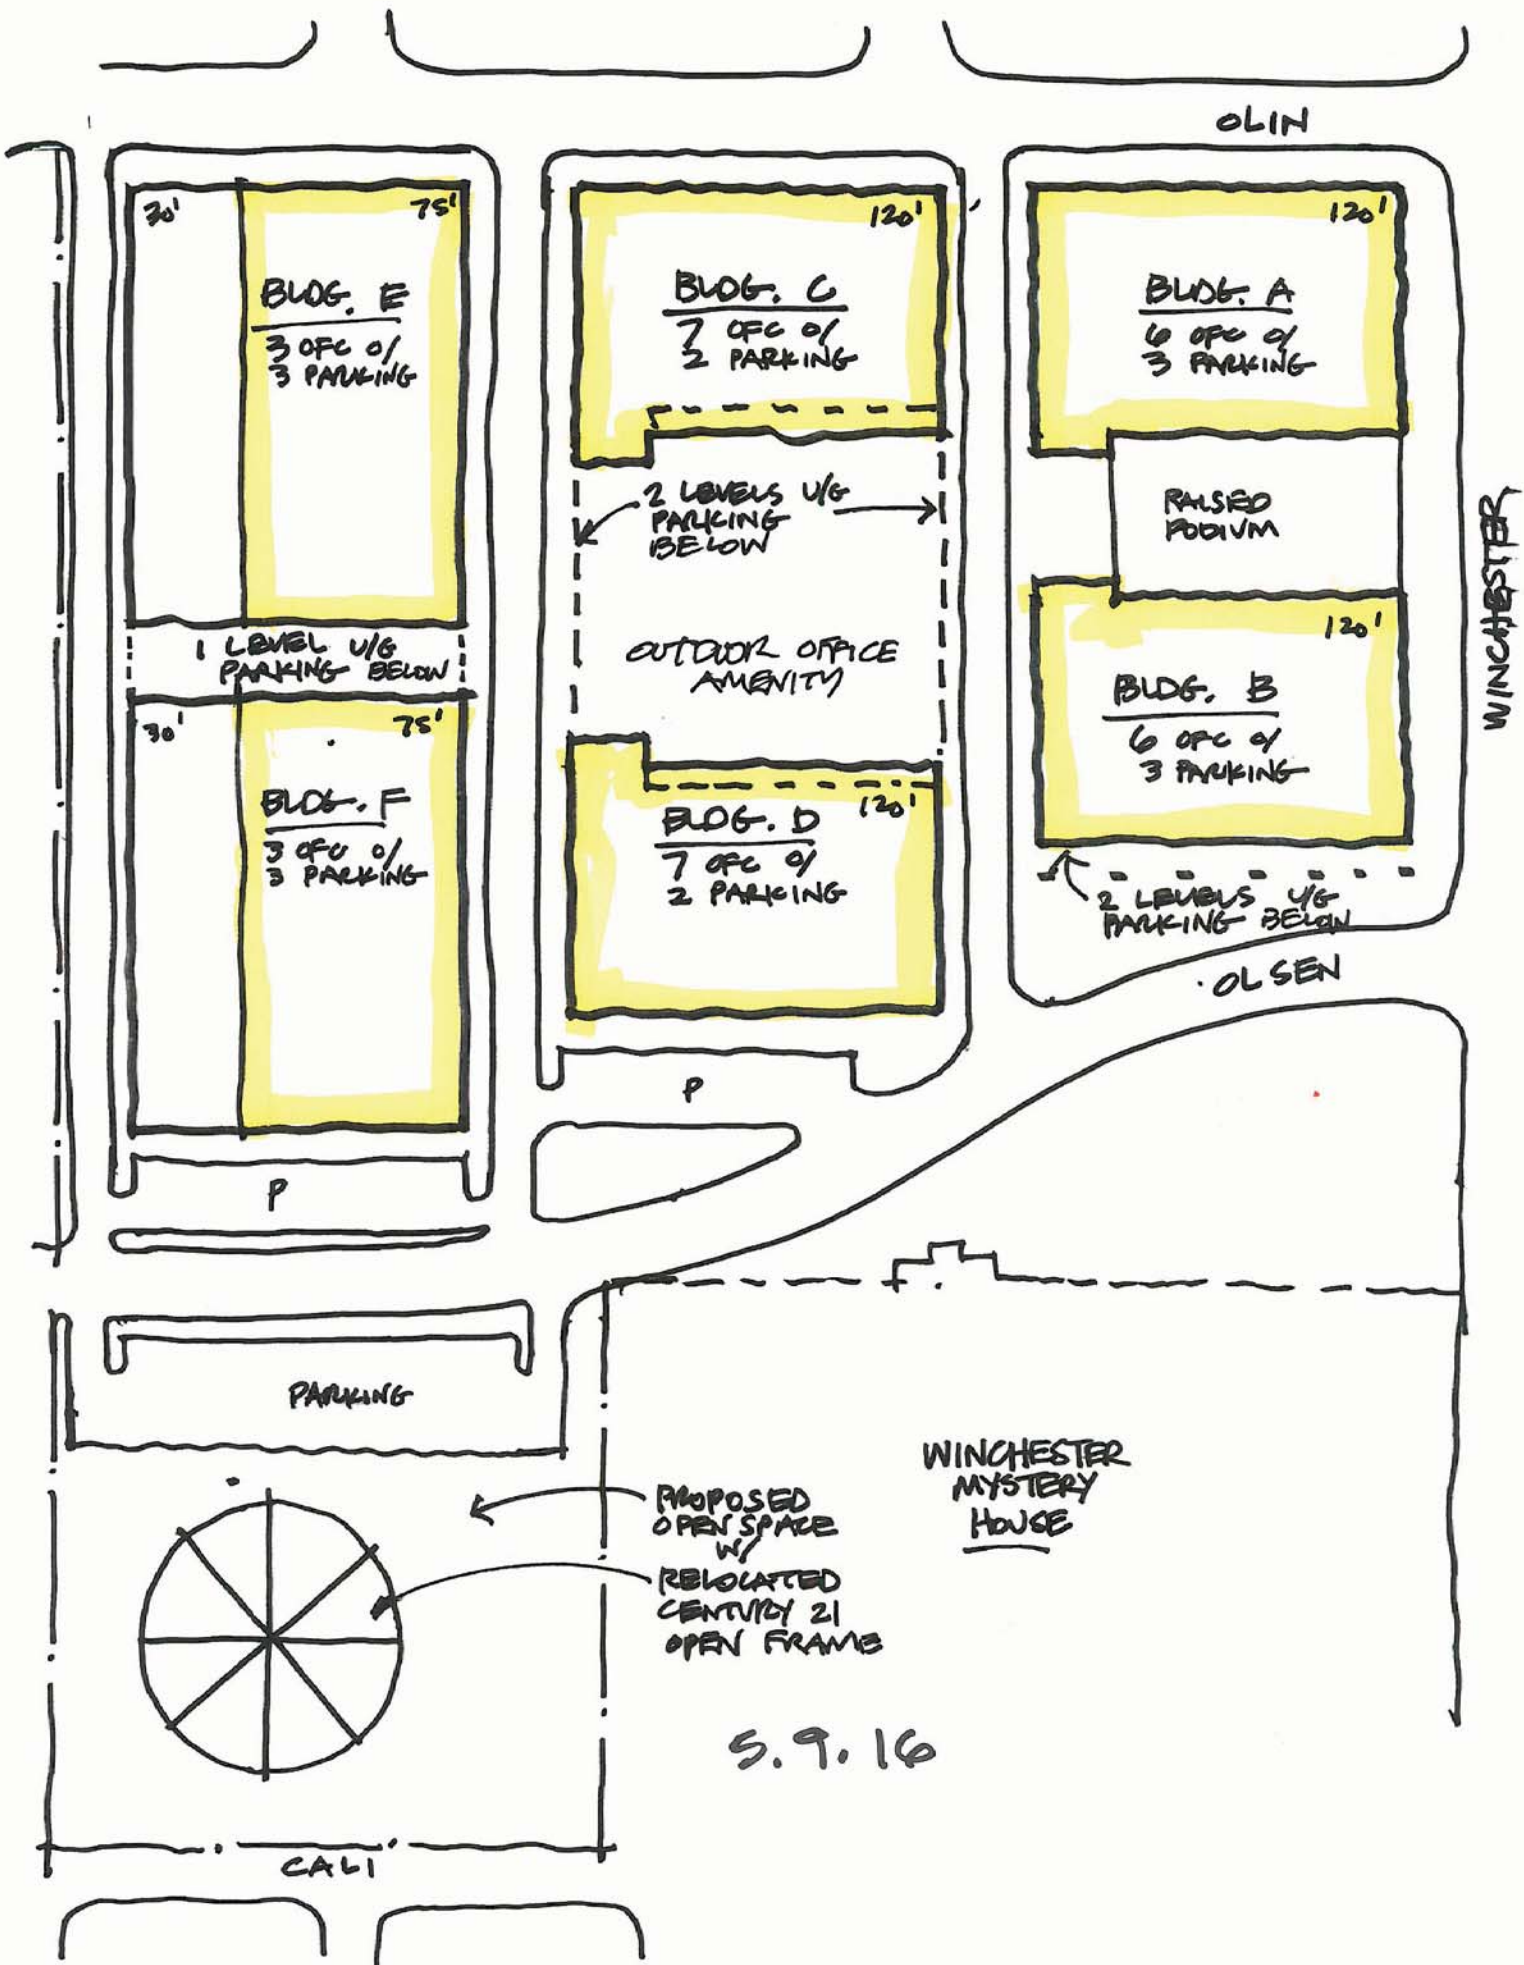 OLIN
30'
75'
BLDG. E
3 OFC O/
3 PARKING
120'
BLDG. C
7 OFC O/
2 PARKING
120'
BLDG. A
6 OFC O/
3 PARKING
2 LEVELS U/G
PARKING
BELOW
RAISED
PODIUM
WINCHESTER
1 LEVEL U/G
PARKING BELOW
OUTDOOR OFFICE
AMENITY
120'
BLDG. B
6 OFC O/
3 PARKING
30'
75'
BLDG. F
3 OFC O/
3 PARKING
120'
BLDG. D
7 OFC O/
2 PARKING
2 LEVELS U/G
PARKING BELOW
OLSEN
P
P
PARKING
WINCHESTER
MYSTERY
HOUSE
PROPOSED
OPEN SPACE
W/
RELOCATED
CENTURY 21
OPEN FRAME
5.9.16
CALI